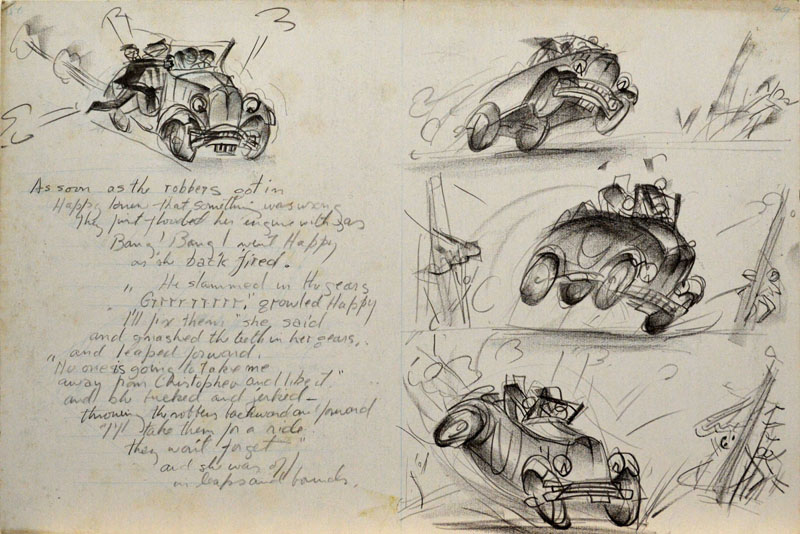 As soon as the robbers got in
Happy knew that something was wrong
They just flooded her engine with gas
Bang! Bang! went Happy
as she back fired.
"He slammed in the gears
Grrrr-rrrrr," growled Happy
I'll fix them" she said
and gnashed the teeth in her gears,
and leaped forward.
"No one is going to take me
away from Christopher and like it"
and she bucked and jerked—
throwing the robbers backward and forward
"I'll take them for a ride
they won't forget"
and she was off
in leaps and bounds.